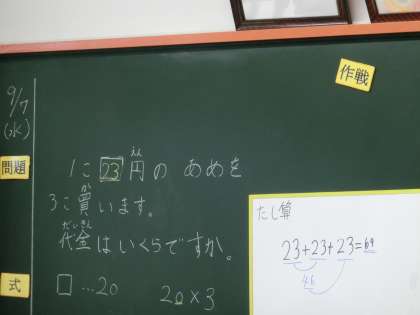 9/7
(水)
作戦
問題
1こ23円のあめを
えん
3こ買います。
か
代金はいくらですか。
だいきん
式
□…20
20×3
たし算
23+23+23=69
46